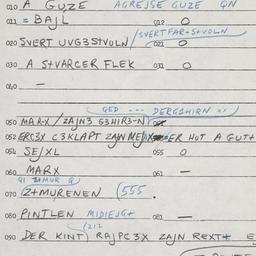 010 A GUZE AGREJSE GUZE QN
011 = BAJL 012 O
020 SVERT UVG3STVLN / SVERT FAR=STVLN 021 O
030 A STVARCER FLEK 031 O
040 —
QED --- DERGSHIRN
050 MARX / ZAJN3 G3HIR3-N
052 ERC3X C3KLAPT ZAJN ER HOT A GUT
054 SE/XL 055 O
060 MARX 061 —
070 Z+MURENEN (555.
080 PINTLEN MIDIEJG+ 081 —
(212
090 DER KINT) RAJPC3X ZAJN REXT+